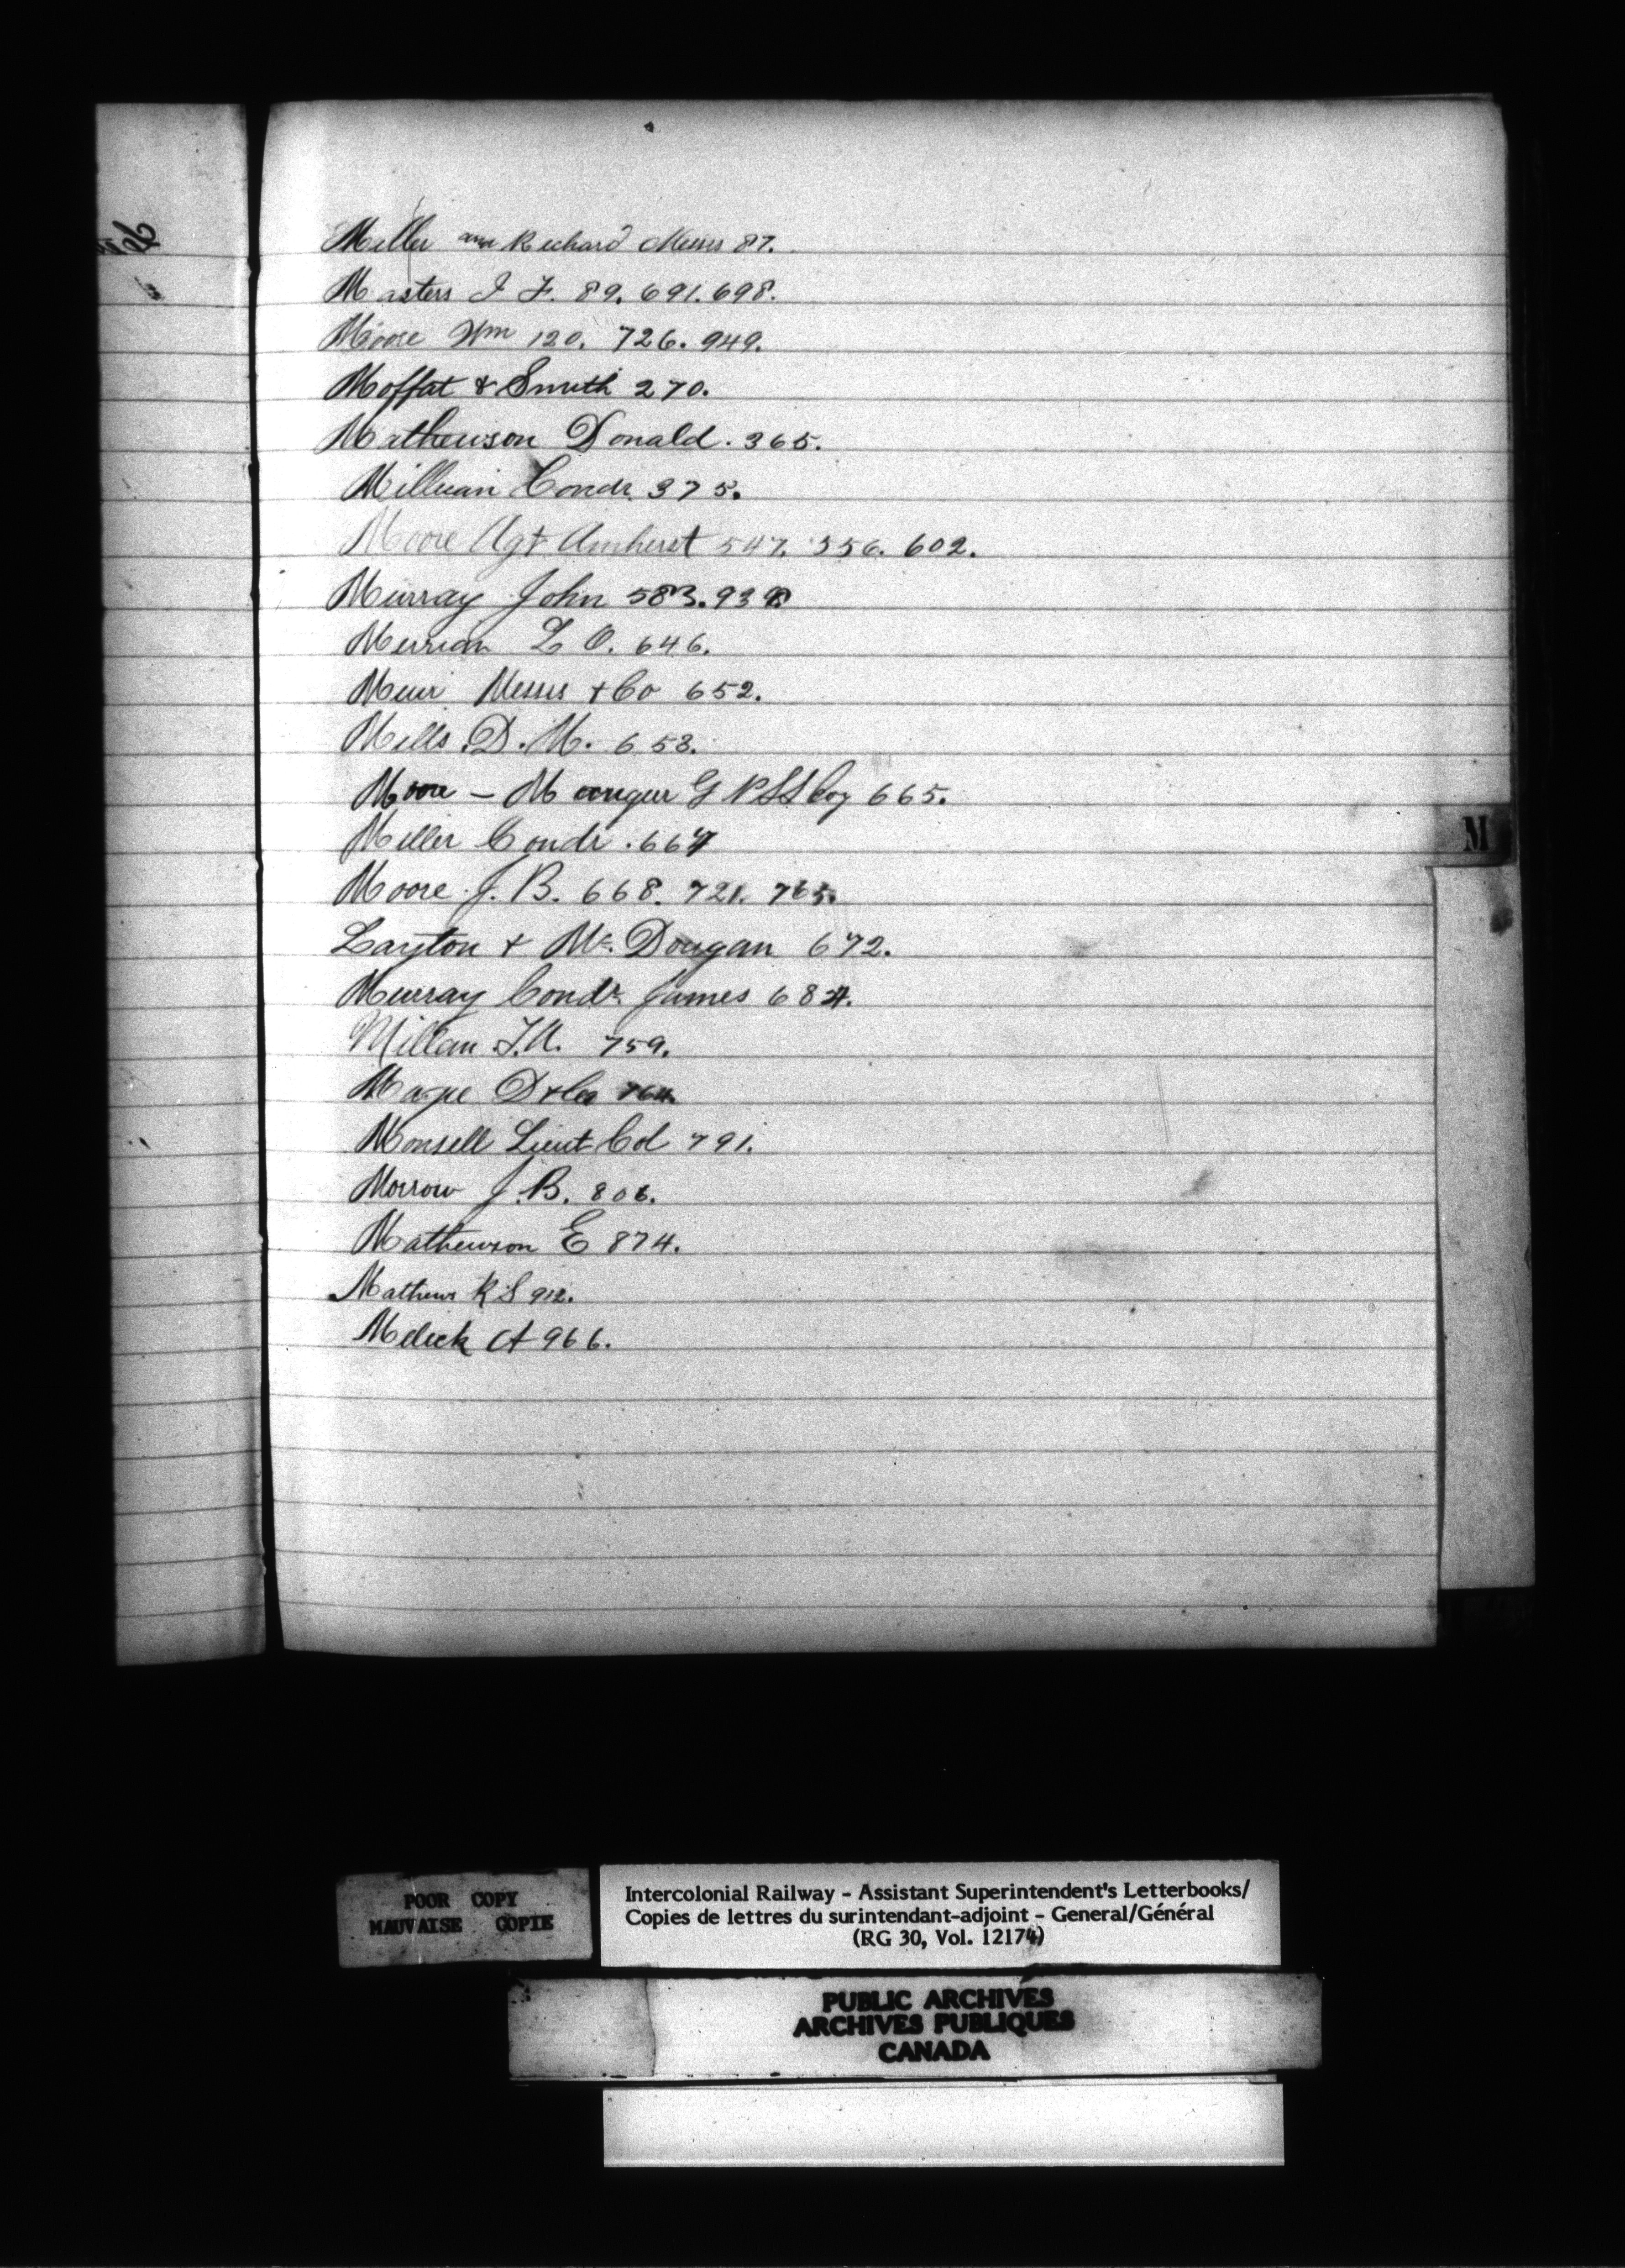 Miller and Richard Messrs 87.
Masters J F. 89. 691. 698.
Moore Wm 120. 726. 949.
Moffat & Smith 270.
Mathewson Donald. 365.
Millican Condr 375.
Moore Agt Amherst 547. 556. 602.
Murray John 583. 938
Merriam L O. 646.
Muir Messrs & Co 652.
Mills D. M. 653.
Moore - Manager G P S S Coy 665.
Miller Condr. 667
Moore J. B. 668. 721. 765.
Layton & Mc Dougan 672.
Murray Condr James 684.
Millan J. A. 759.
D & Co 764.
Monsell Lieut Col 791.
Morrow J. B. 806.
Mathewson E 874.
Mathews R S 912.
Melick A 966.
M
POOR COPY
MAUVAISE COPIE
Intercolonial Railway - Assistant Superintendent's Letterbooks/
Copies de lettres du surintendant-adjoint - General/Général
(RG 30, Vol. 12174)
PUBLIC ARCHIVES
ARCHIVES PUBLIQUES
CANADA